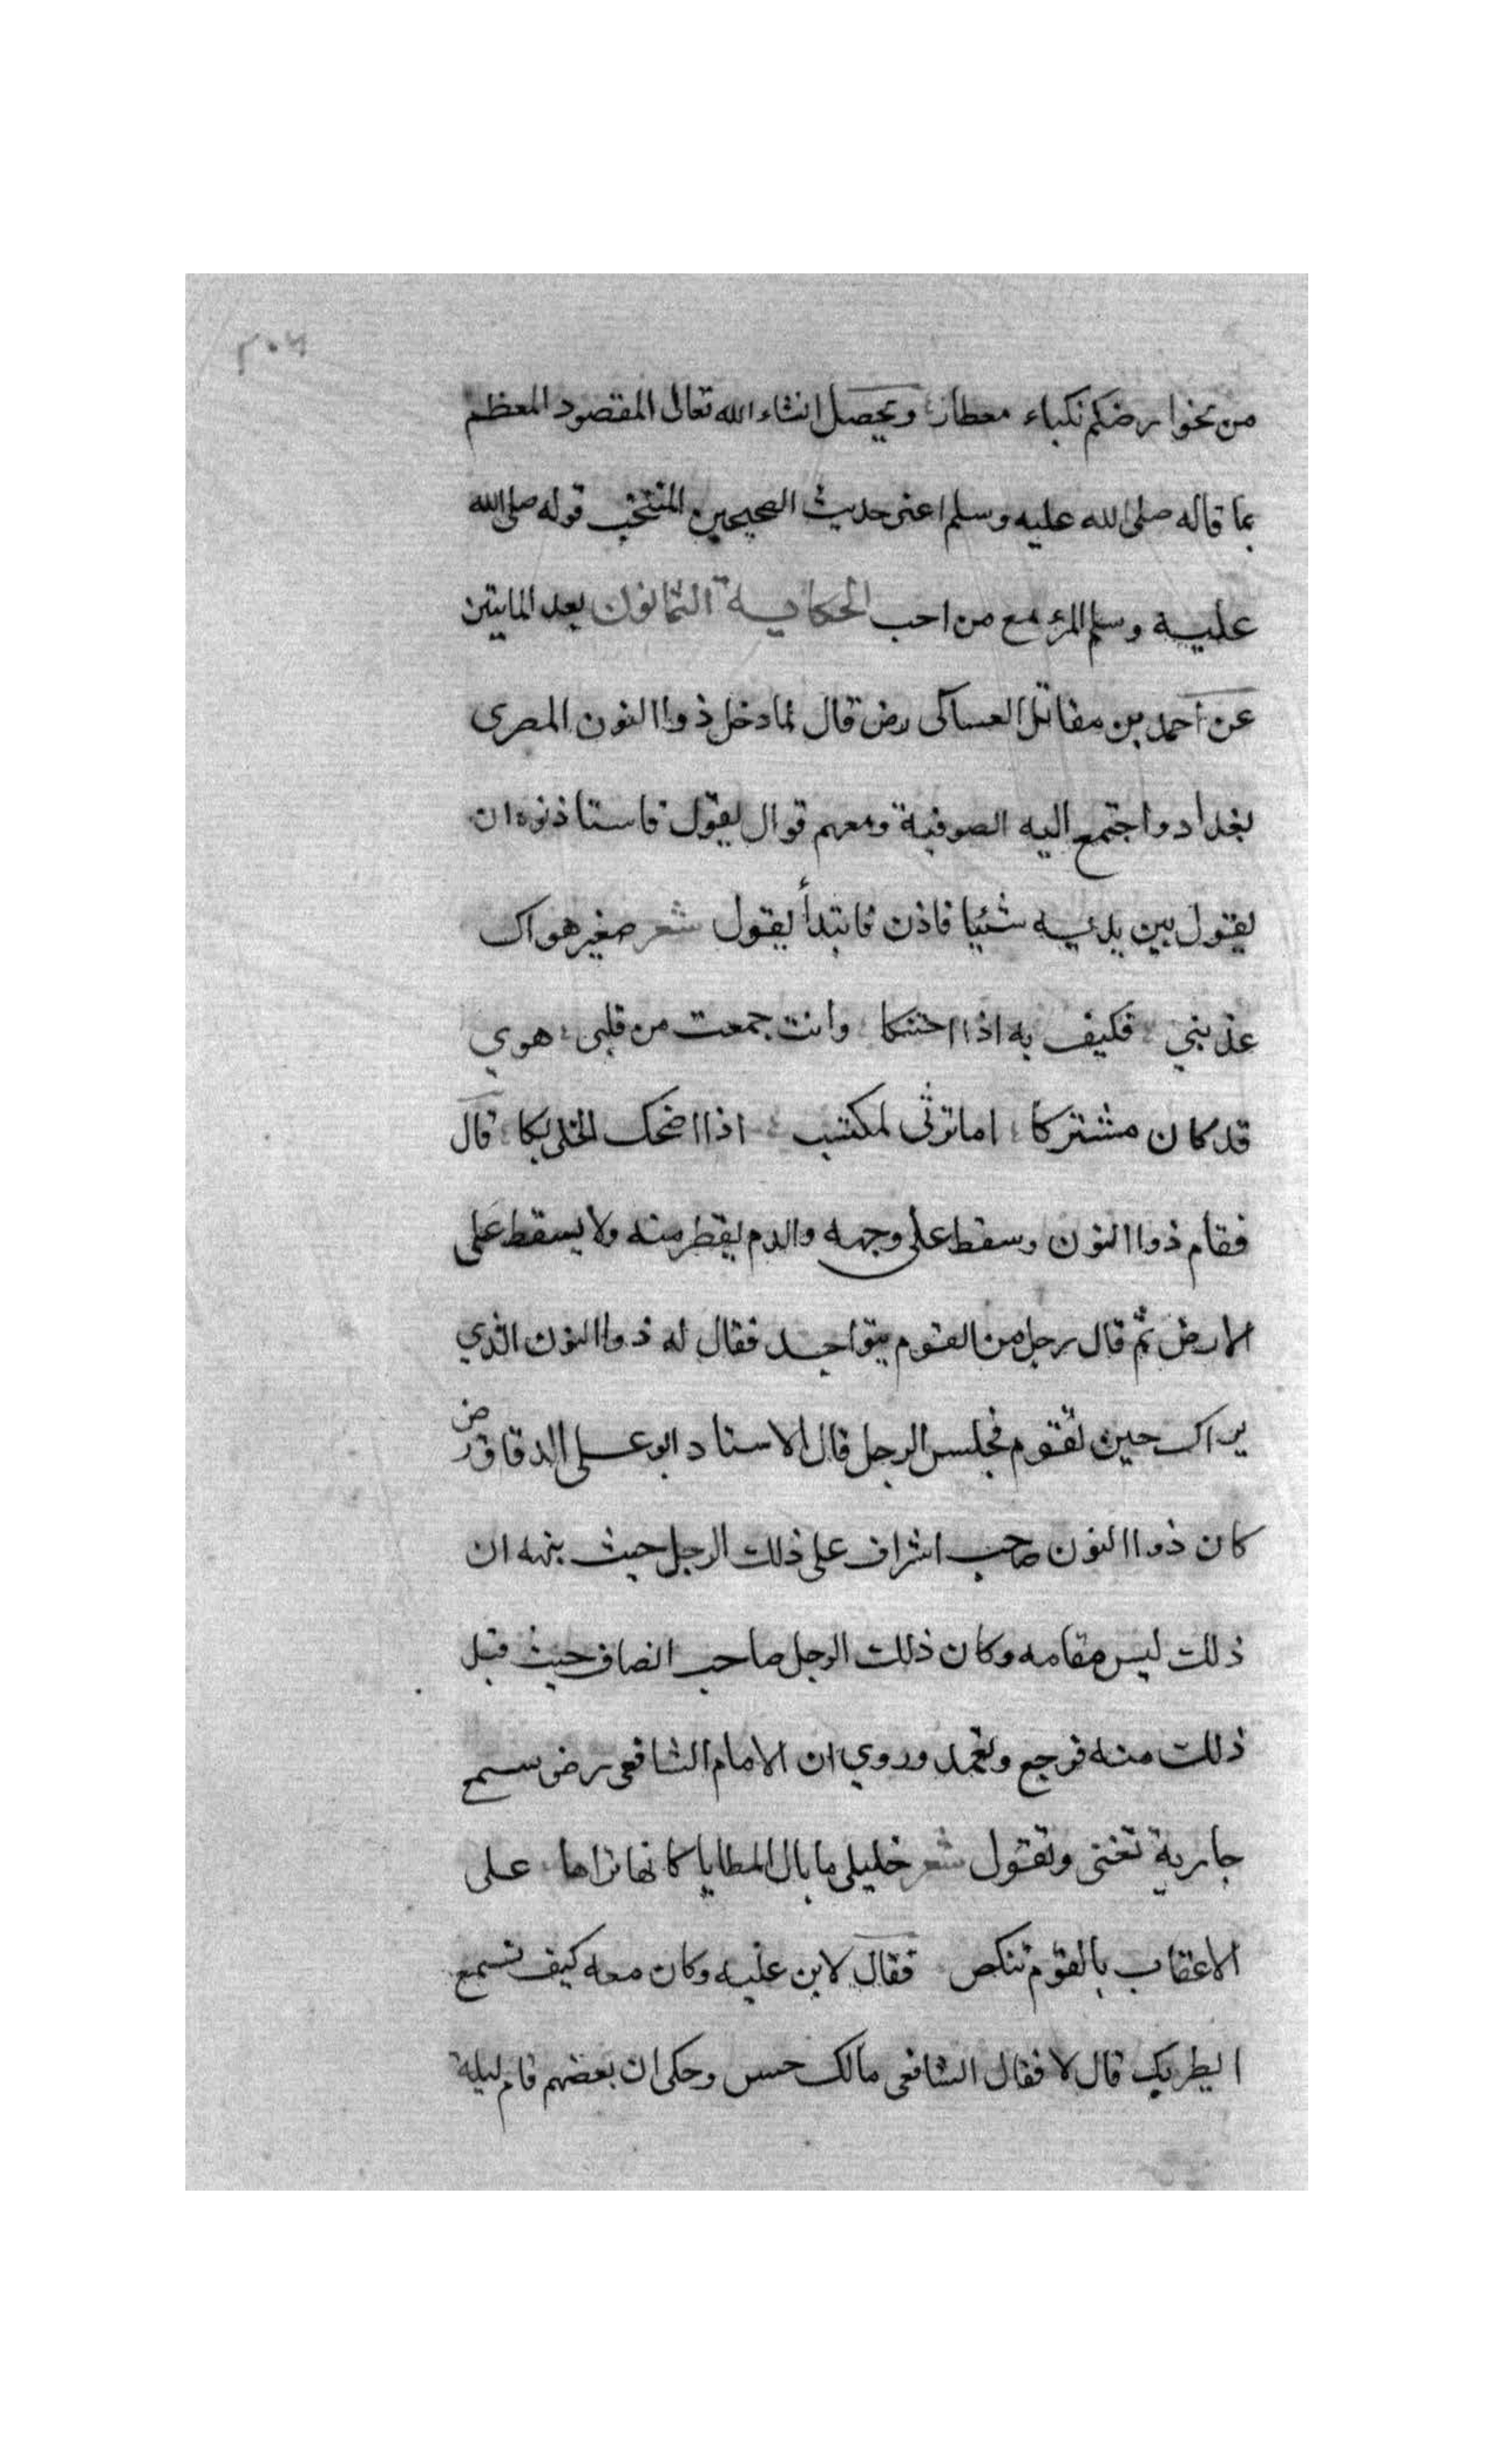 ٢٠٢
من نحوا رضكم نكباء معطار ويحصل انشاء الله تعالى المقصود المعظم
بما قاله صلى الله عليه وسلم اعنى حديث الصحيحين المنتخب قوله صلى الله
عليه وسلم المرء مع من احب الحكاية الثمانون بعد المايتين
عن احمد بن مقاتل العساكى رض قال لما دخل ذوا النون المصرى
بغداد واجتمع اليه الصوفية ومعهم قوال يقول فاستاذنوه ان
يقول بين يديه شئيا فاذن فابتدأ يقول شعر صغير هواك
عذبني فكيف به اذا احتنكا وانت جمعت من قلبى هوي
قد كان مشتركا اما ترثى لمكتئب اذا اضحك الخلى بكا قال
فقام ذوا النون وسقط على وجهه والدم يقطر منه ولا يسقط على
الارض ثم قال رجل من القوم يتواجد فقال له ذوا النون الذي
يراك حين تقوم فجلس الرجل قال الاستاد ابو على الدقاق رض
كان ذوا النون صاحب اشراف على ذلك الرجل حيث نبهه ان
ذلك ليس مقامه وكان ذلك الرجل صاحب انصاف حيث قبل
ذلك منه فرجع وتعمد وروي ان الامام الشافعى رض سمع
جارية تغنى وتقول شعر خليلى ما بال المطايا كانها نراها على
الاعقاب بالقوم تنكص فقال لابن عليه وكان معه كيف تسمع
ايطربك قال لا فقال الشافعى مالك حس وحكى ان بعضهم قام ليلة